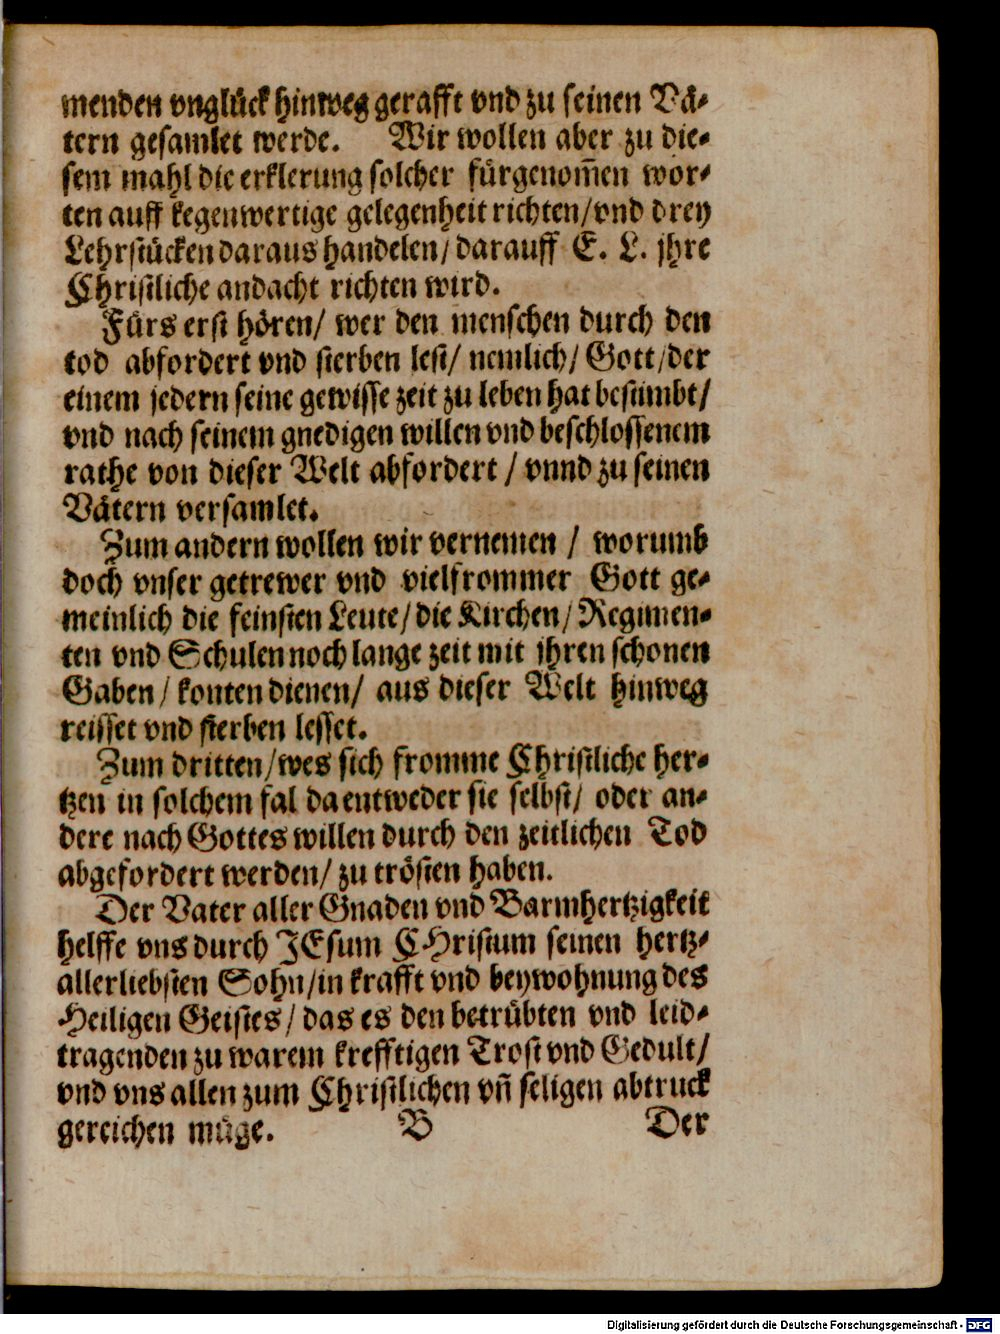 menden vnglück hinweg gerafft vnd zu seinen Vä-
tern gesamlet werde. Wir wollen aber zu die-
sem mahl die erklerung solcher fürgenom̃en wor-
ten auff kegenwertige gelegenheit richten/vnd drey
Lehrstücken daraus handelen/ darauff E. L. jhre
Christliche andacht richten wird.
Fürs erst hören/ wer den menschen durch den
tod abfordert vnd sterben lest/ nemlich/ Gott/der
einem jedern seine gewisse zeit zu leben hat bestimbt/
vnd nach seinem gnedigen willen vnd beschlossenem
rathe von dieser Welt abfordert / vnnd zu seinen
Vätern versamlet.
Zum andern wollen wir vernemen / worumb
doch vnser getrewer vnd vielfrommer Gott ge-
meinlich die feinsten Leute/ die Kirchen/ Regimen-
ten vnd Schulen noch lange zeit mit ihren schonen
Gaben/ konten dienen/ aus dieser Welt hinweg
reisset vnd sterben lesset.
Zum dritten/wes sich fromme Christliche her-
tzen in solchem fal da entweder sie selbst/ oder an-
dere nach Gottes willen durch den zeitlichen Tod
abgefordert werden/ zu trösten haben.
Der Vater aller Gnaden vnd Barmhertzigkeit
helffe vns durch JEsum CHristum seinen hertz-
allerliebsten Sohn/in krafft vnd beywohnung des
Heiligen Geistes/ das es den betrübten vnd leid-
tragenden zu warem krefftigen Trost vnd Gedult/
vnd vns allen zum Christlichen vñ seligen abtruck
gereichen müge. B Der
Digitalisierung gefördert durch die Deutsche Forschungsgemeinschaft - DFG